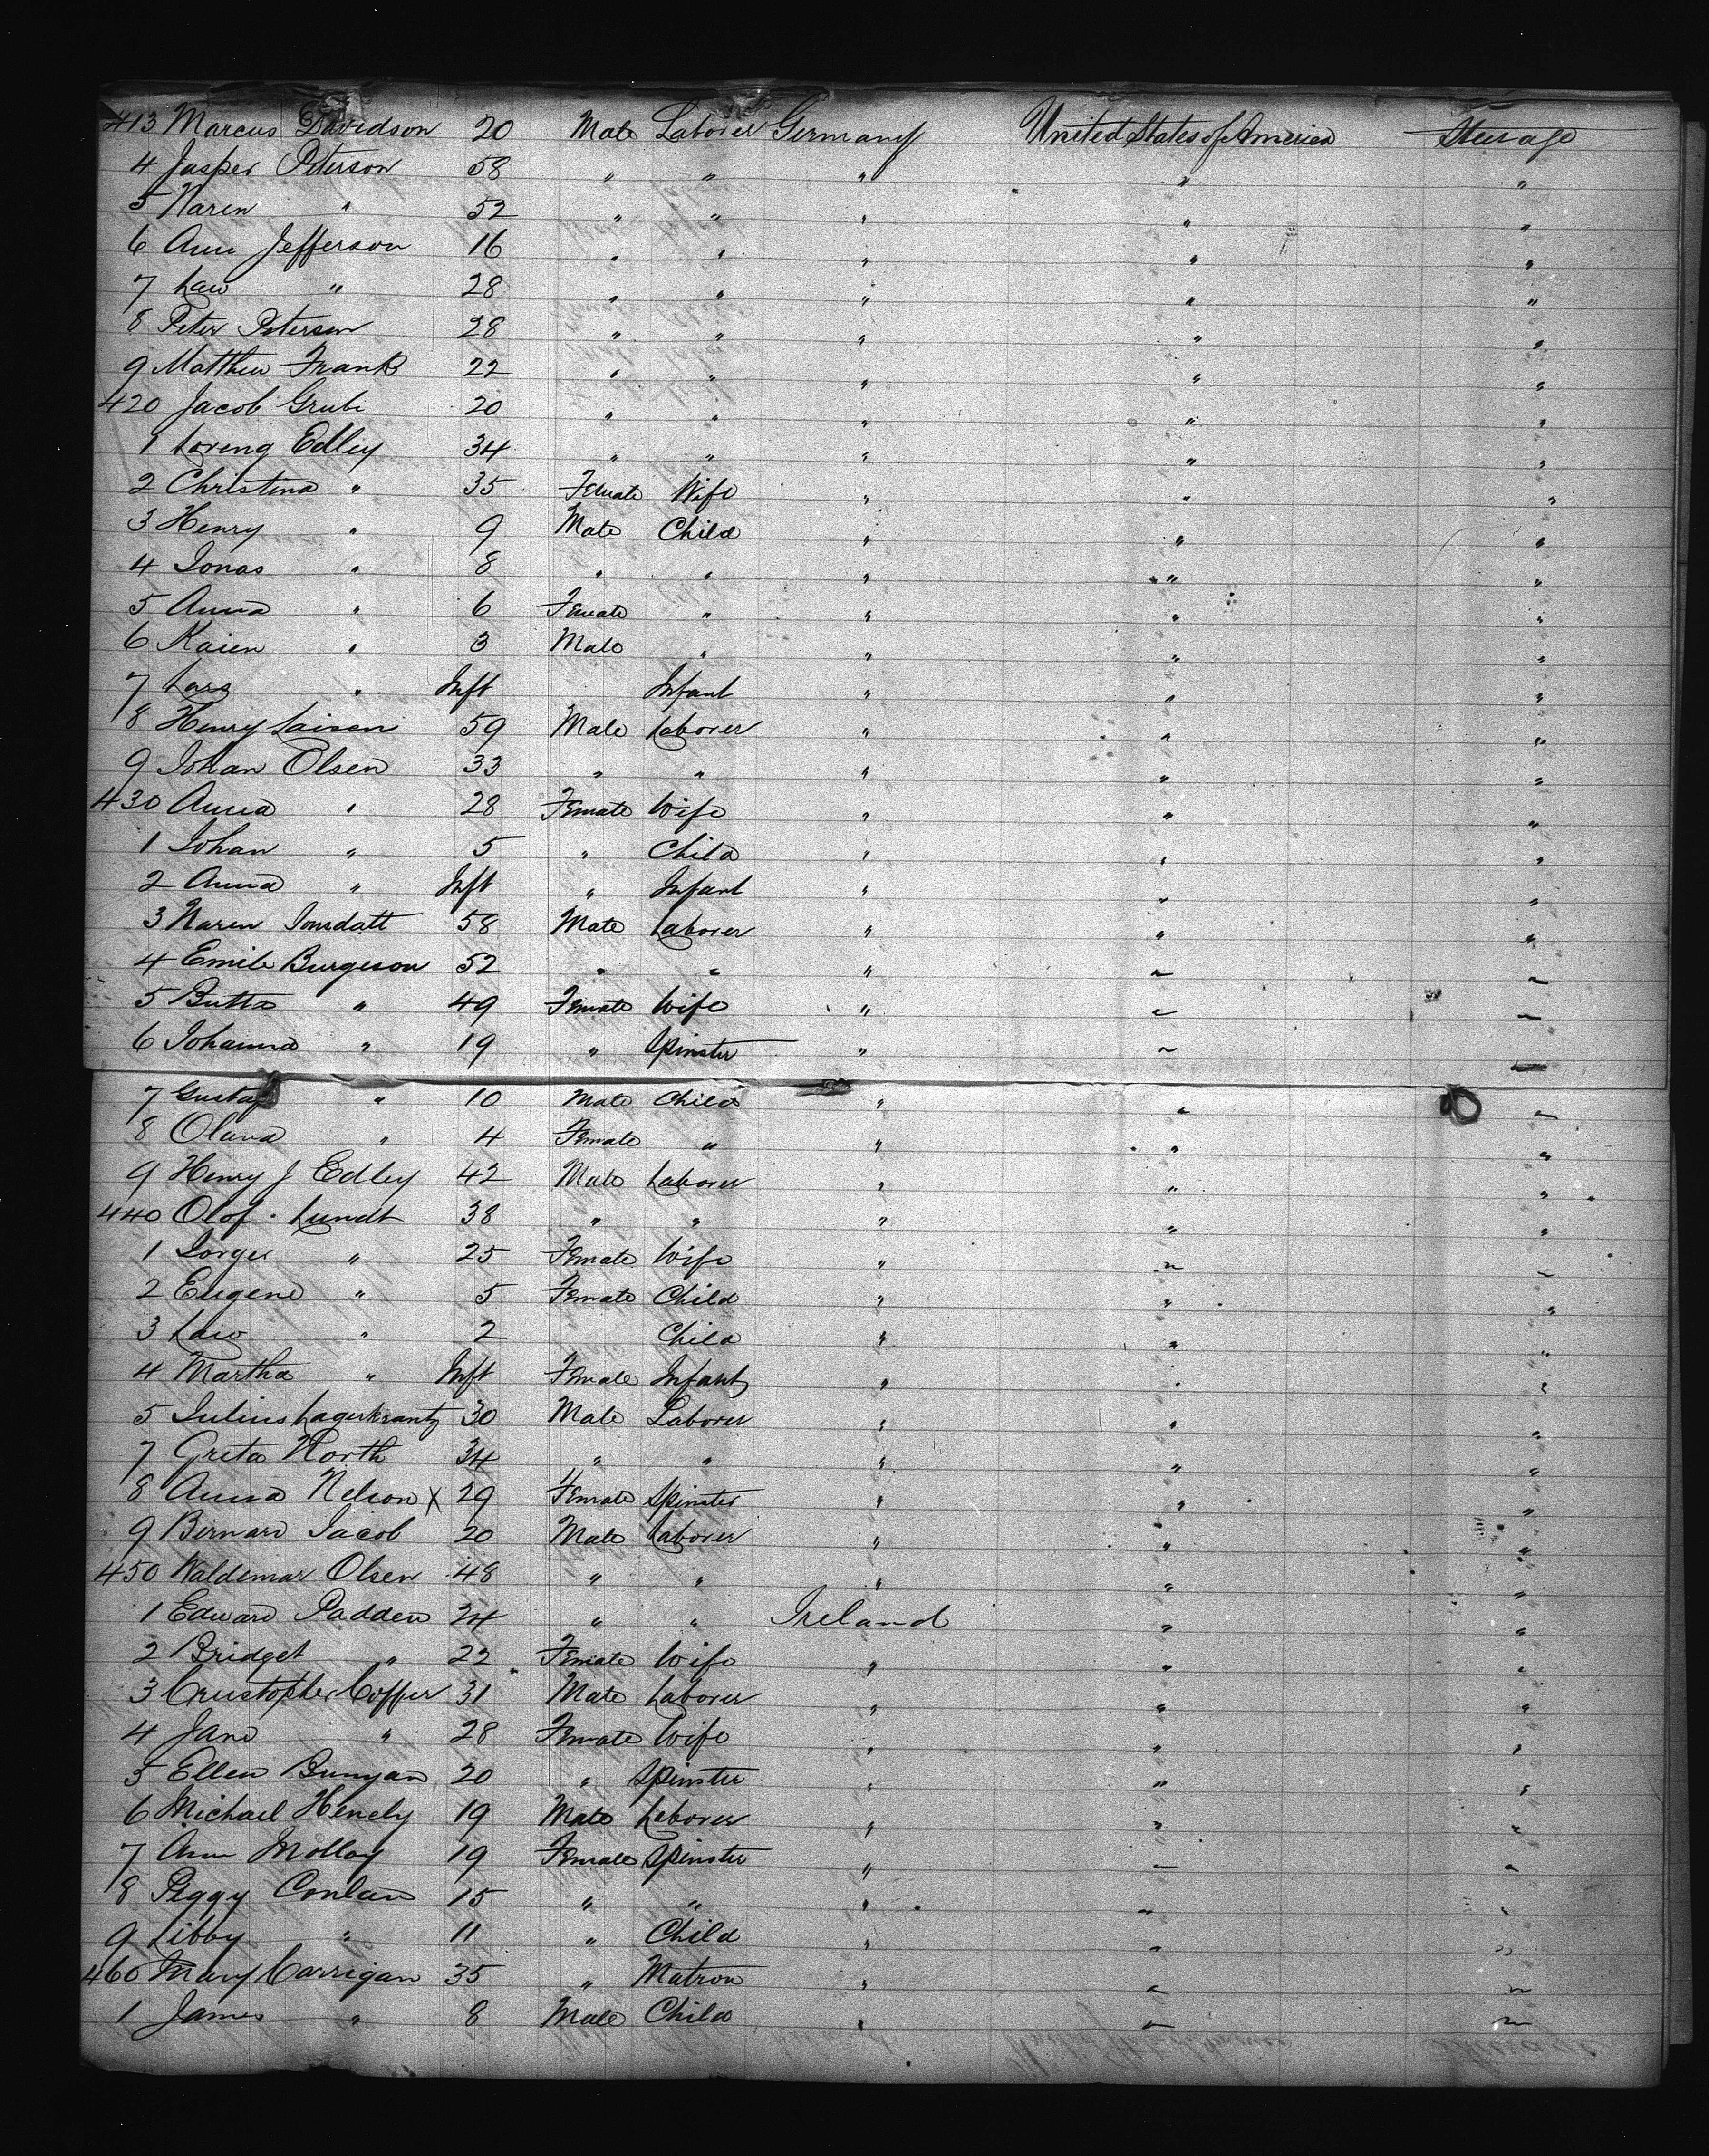 413 Marcus Davidson 20 Male Laborer Germany United States of America Steerage
4 Jasper Peterson 58 " " " " "
5 Karen " 52 " " " " "
6 Ann Jefferson 16 " " " " "
7 Law " 28 " " " " "
8 Peter Peterson 28 " " " " "
9 Matthew Frank 22 " " " " "
420 Jacob Grube 20 " " " " "
1 Loreng Edley 34 " " " " "
2 Christina " 35 Female Wife " " "
3 Henry " 9 Male Child " " "
4 Jonas " 8 " " " " "
5 Anna " 6 Female " " " "
6 Karen " 3 Male " " " "
7 Lars " Inft Infant " " "
8 Henry Laisen 59 Male Laborer " " "
9 Johan Olsen 33 " " " " "
430 Anna " 28 Female Wife " " "
1 Johan " 5 " Child " " "
2 Anna " Inft " Infant " " "
3 Karen 58 Male Laborer " " "
4 Emile Burgeson 52 " " " " "
5 Butta " 49 Female Wife " " "
6 Johanna " 19 " Spinster " " "
7 Gustaf " 10 Male Child " " "
8 Olava " 4 Female " " " "
9 Henry J Edley 42 Male Laborer " " "
440 Olof Lundt 38 " " " " "
1 " 25 Female Wife " " "
2 Eugene " 5 Female Child " " "
3 " 2 Child " " "
4 Martha " Inft Female Infant " " "
5 Julius Lagerkrantz 30 Male Laborer " " "
7 Greta North 34 " " " " "
8 Anna Nelson X 29 Female Spinster " " "
9 Bernard Jacob 20 Male Laborer " " "
450 Waldemar Olsen 48 " " " " "
1 Edward Padden 24 " " Ireland " "
2 Bridget " 22 Female Wife " " "
3 Cristopher Coffer 31 Male Laborer " " "
4 Jane " 28 Female Wife " " "
5 Ellen Bunyan 20 " Spinster " " "
6 Michael Henely 19 Male Laborer " " "
7 Ann Molloy 19 Female Spinster " " "
8 Peggy Conlan 15 " " " " "
9 Libby " 11 " Child " " "
460 Mary Carrigan 35 " Matron " " "
1 James " 8 Male Child " " "